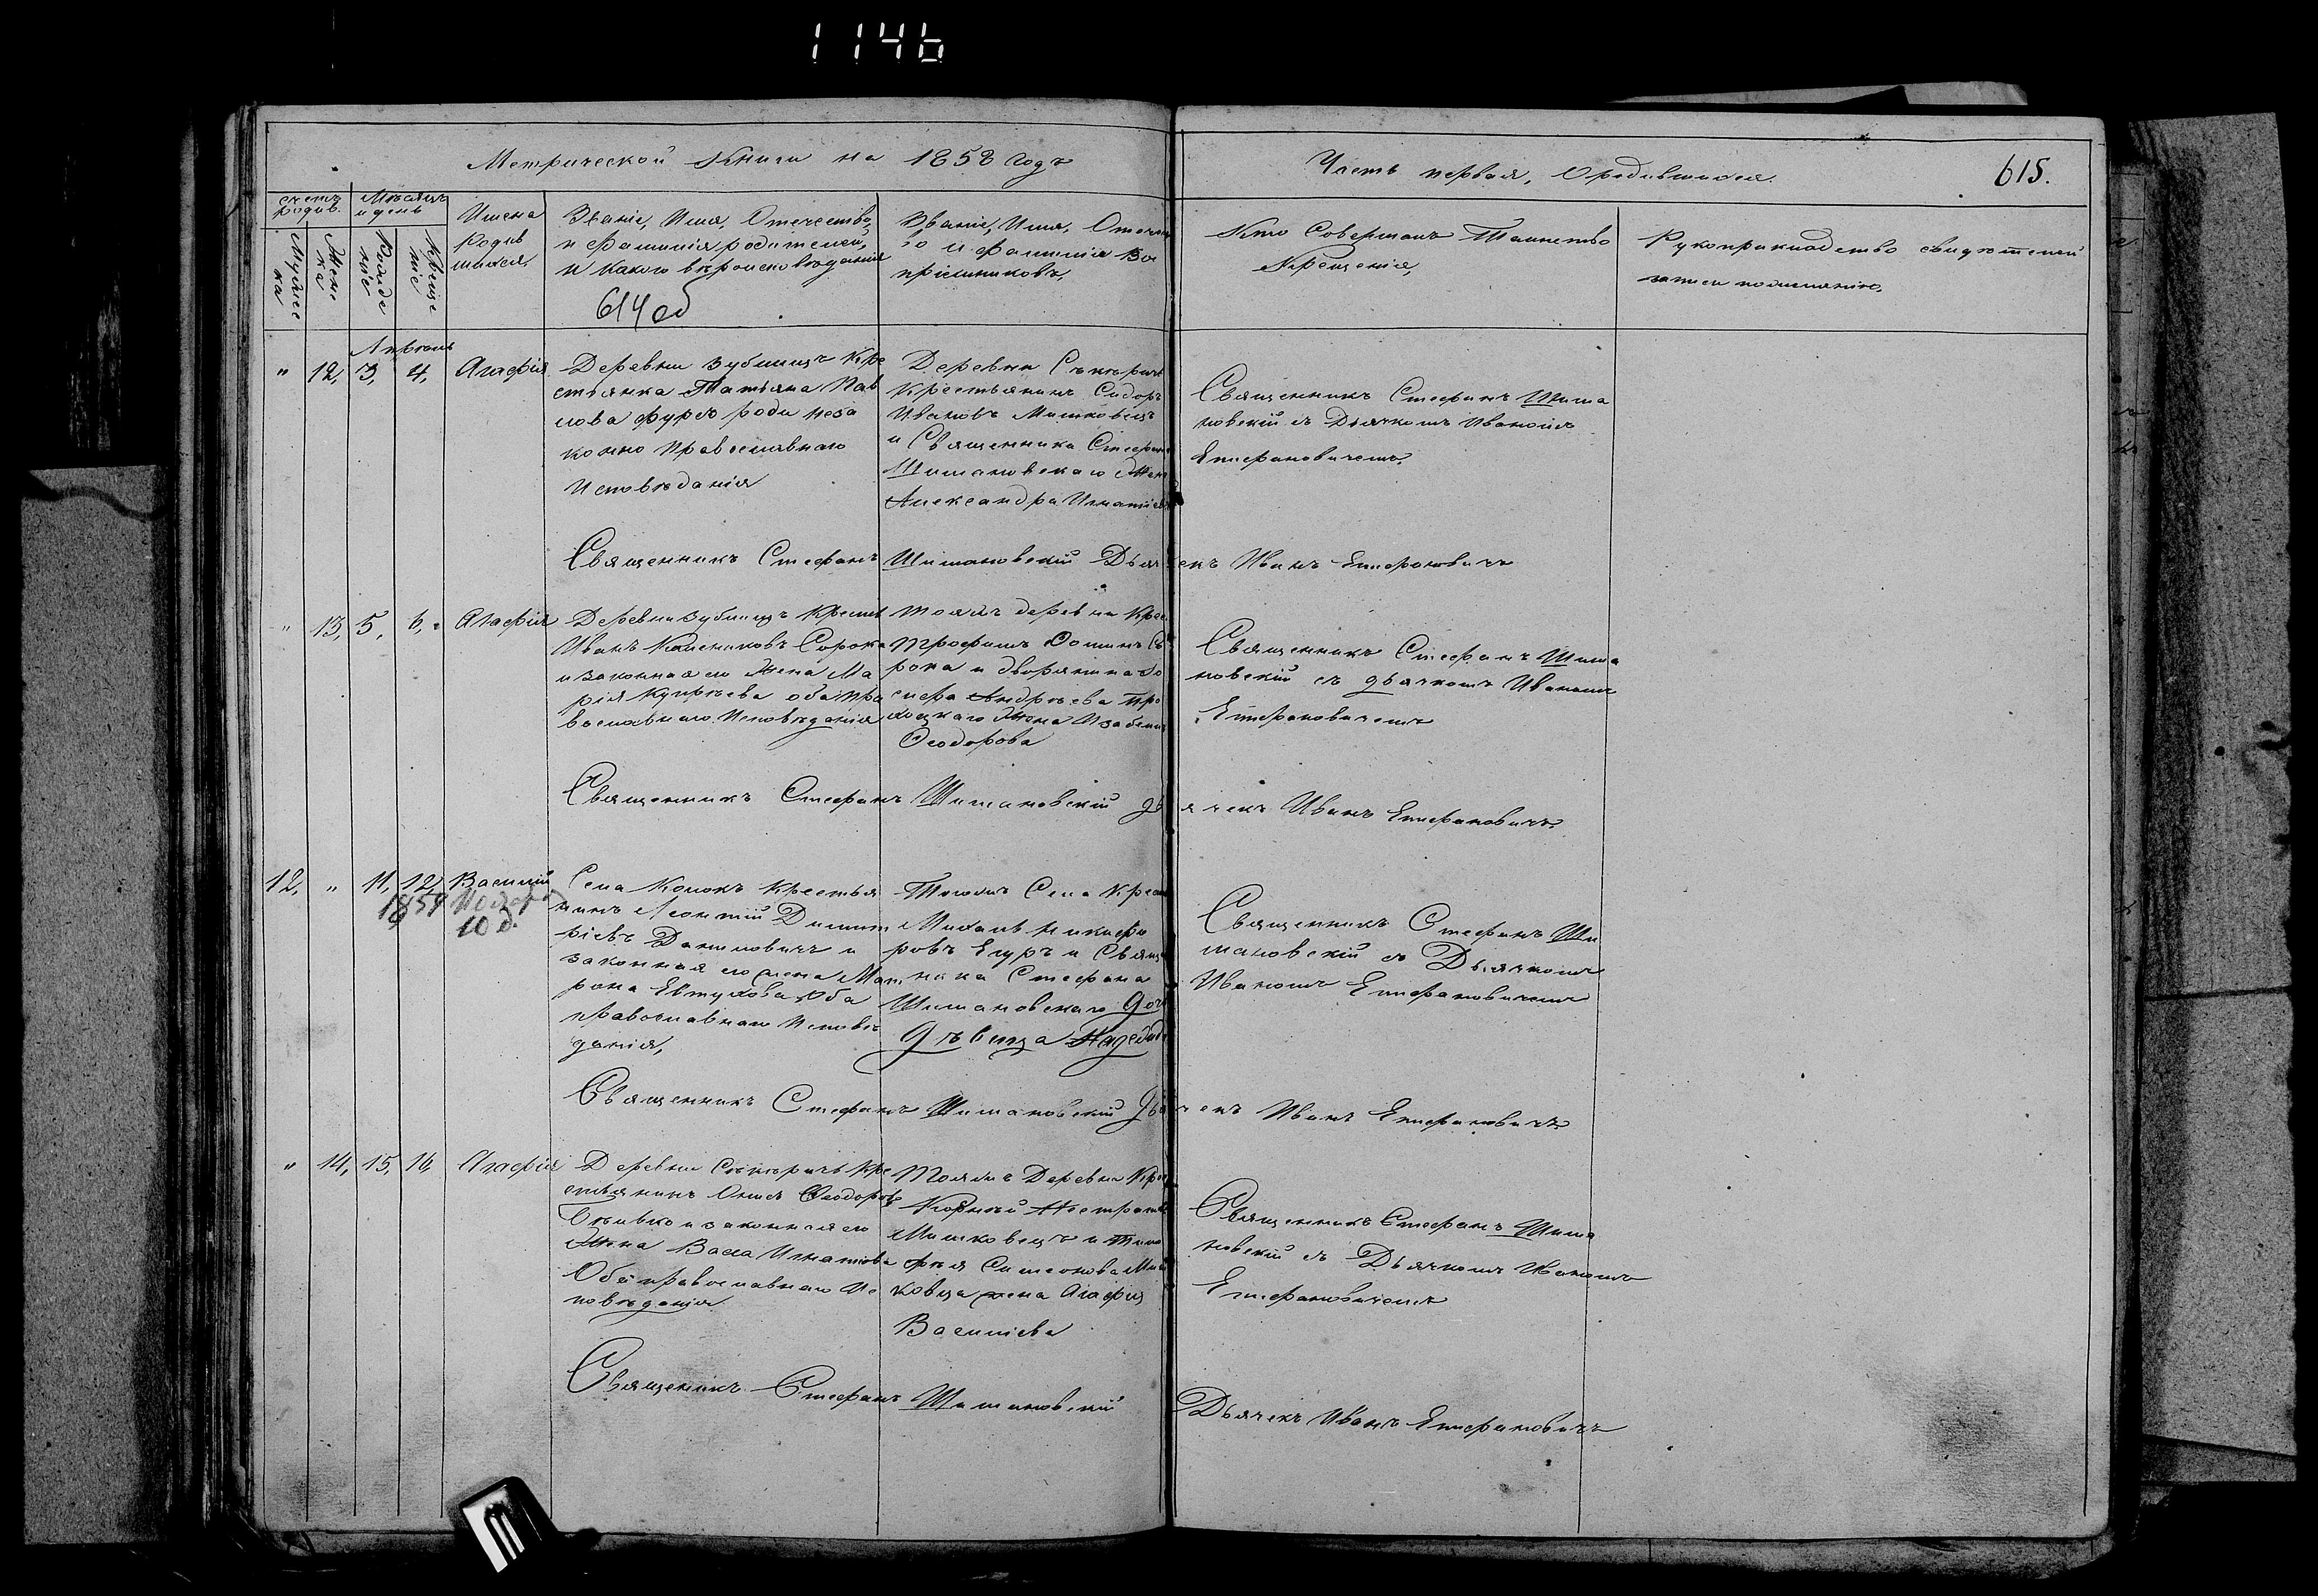 1146
Метрической Книги на 1858 годъ
Часть первая, О родившихся.
615.
счетъ родив.
Мѣсяцъ и день
Мужеска
Женска
Рожденіе
Крещеніе
Имена
родив
шихся
Званіе, Имя, Отечество,
и фамилія родителей,
и какого вѣроисповѣданія
614 об
Званіе, Имя, Отечест
во и фамилія Вос
пріемниковъ,
Кто Совершалъ Таинство
Крещенія,
Рукоприкладство свидѣтелей
записи по желанію.
Апрель
" 12, 3, 4, Агафія
Деревни Зубилицъ Кре
стьянка Татьяна Пав
лова Фурсъ роди неза
конно Православнаго
Исповѣданія
Деревни Секиричъ
Крестьянинъ Сидоръ
Ивановъ Мишковецъ
и Священника Стефана
Шимановскаго Жена
Александра Игнатіева
Священникъ Стефанъ Шима
новскій съ Дьячкомъ Иваномъ
Епифановичемъ.
Священникъ Стефанъ Шимановскій Дьячекъ Иванъ Епифановичъ
" 13, 5, 6, Агафія
Деревни Зубилицъ Крестья
Иванъ Калениковъ Сорока
и законная его Жена Ма
рія Купрѣева оба Пра
вославнаго Исповѣданія
Тояжъ деревни Крес
Трофимъ Фоминъ Со
рока и дворянина Іо
сифа Андрѣева Про
жена Изабела
Феодорова
Священникъ Стефанъ Шима
новскій съ дьячкомъ Иваномъ
Епифановичемъ
Священникъ Стефанъ Шимановскій дьячекъ Иванъ Епифановичъ.
12, " 11, 12, Василій
1859
10 д.
Села Колокъ Крестья
нинъ Леонтій Димит
ріевъ Даниловичъ и
законная его жена Мат
рона Евтухова Оба
православнаго Исповѣ
данія,
Тогожъ Села Крест
Михаилъ Никифо
ровъ Егуръ и Священ
ника Стефана
Шимановскаго Дочь
Дѣвица Надежда
Священникъ Стефанъ Ши
мановскій съ Дьячкомъ
Иваномъ Епифановичемъ
Священникъ Стефанъ Шимановскій Дьячекъ Иванъ Епифановичъ
" 14, 15, 16, Агафія
Деревни Секиричъ Кре
стьянинъ Феодоровъ
и законная его
Жена Васса Игнатіева
Оба православнаго Ис
повѣданія
Тояжъ Деревни Кре
Корнѣй
Мишковецъ и Тимо
фея Симеонова Миш
ковца жена Агафія
Василіева
Священникъ Стефанъ Шима
новскій съ Дьячкомъ Иваномъ
Епифановичемъ
Священикъ Стефанъ Шимановскій Дьячекъ Иванъ Епифановичъ